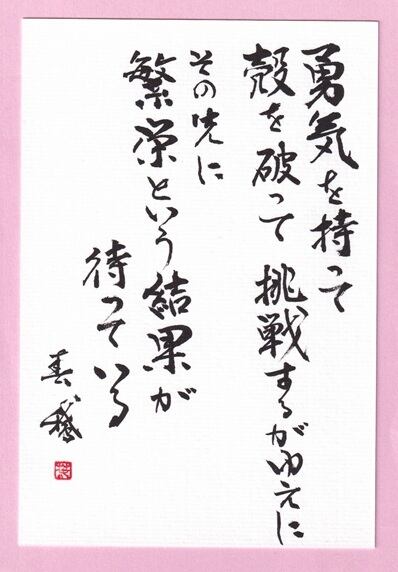 勇気を持って
殻を破って挑戦するがゆえに
その先に
繁栄という結果が
待っている